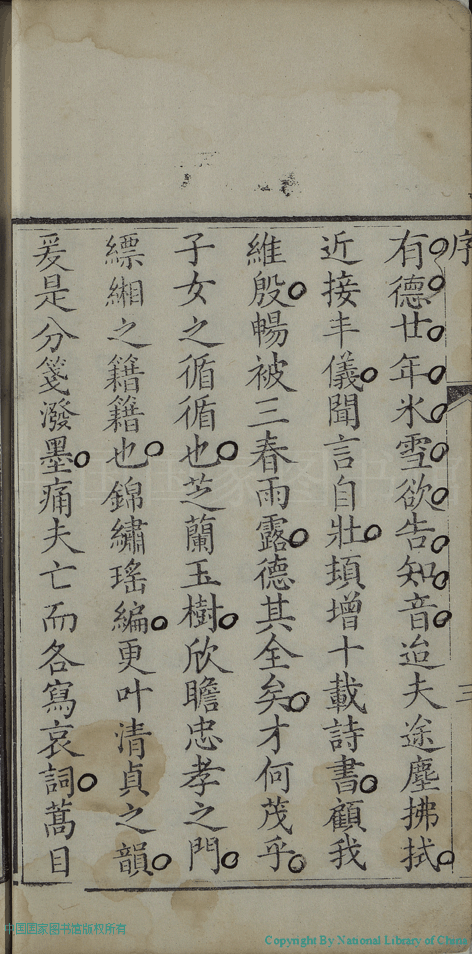 序
三
有德廿年氷雪欲告知音迨夫途塵拂拭
近接丰儀聞言自壯頓增十載詩書顧我
維殷暢被三春雨露德其全矣才何茂乎
子女之循循也芝蘭玉樹欣瞻忠孝之門
縹緗之籍籍也錦繡瑤編更叶清貞之韻
爰是分箋潑墨痛夫亡而各寫哀詞蒿目
中国国家图书馆版权所有
Copyright By National Library of China